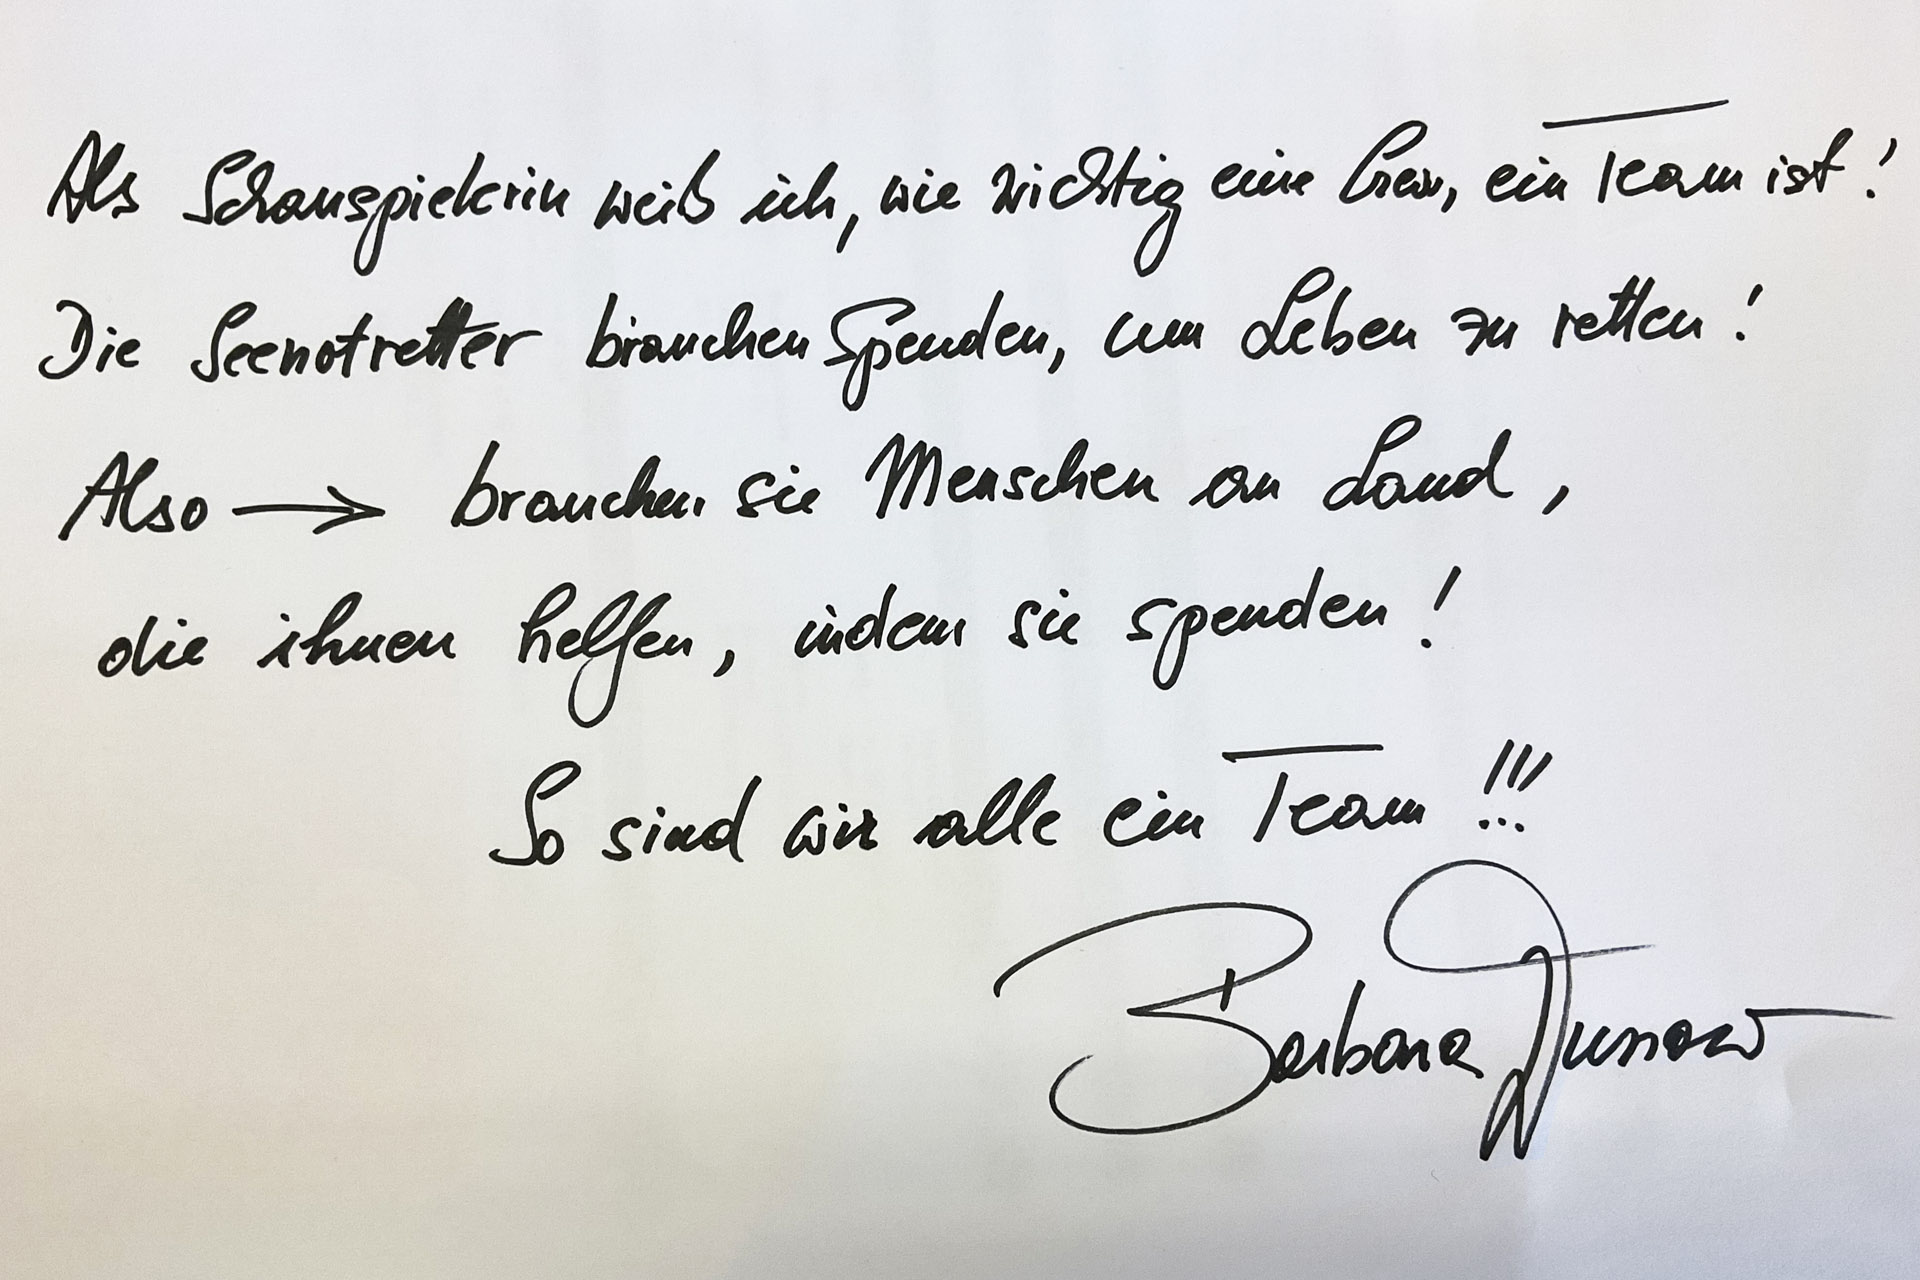 Als Schauspielerin weiß ich, wie wichtig eine Crew, ein Team ist!
Die Seenotretter brauchen Spenden, um Leben zu retten!
Also → brauchen sie Menschen an Land,
die ihnen helfen, indem sie spenden!
So sind wir alle ein Team!!!
Barbara